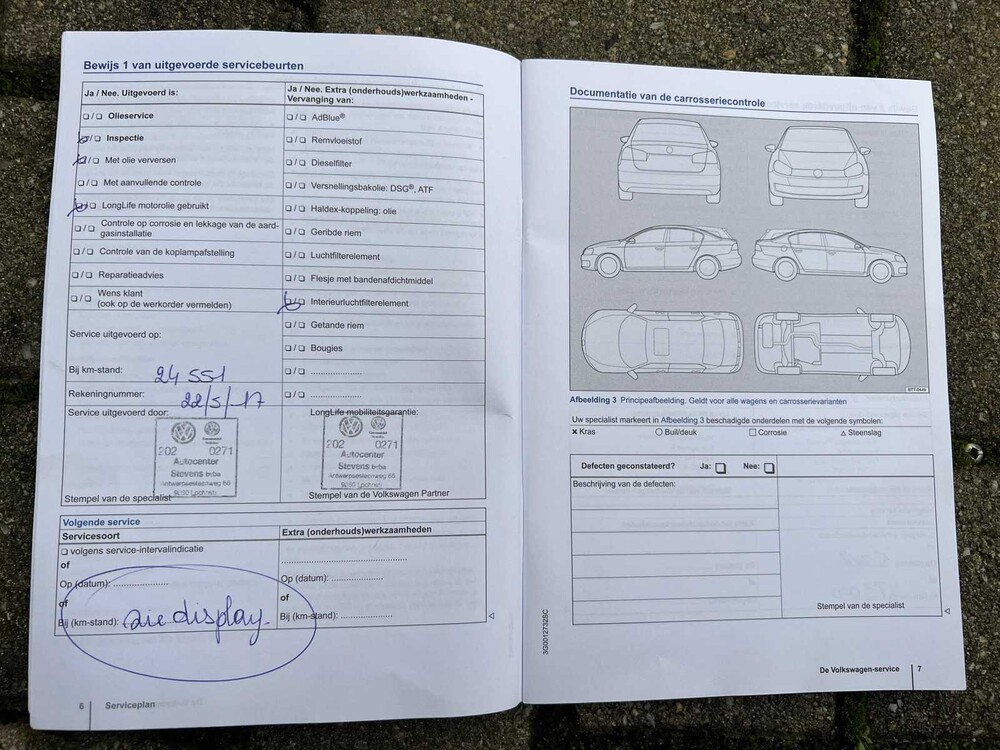 Bewijs 1 van uitgevoerde servicebeurten
Ja / Nee. Uitgevoerd is:
Olieservice
Inspectie
Met olie verversen
Met aanvullende controle
LongLife motorolie gebruikt
Controle op corrosie en lekkage van de aard-
gasinstallatie
Controle van de koplampafstelling
Reparatieadvies
Wens klant
(ook op de werkorder vermelden)
Service uitgevoerd op:
Bij km-stand: 24 551
Rekeningnummer: 22/5/-17
Service uitgevoerd door:
202 0271
Autocenter
Stevens bvba
Antwerpsesteenweg 65
9080 Lochristi
Stempel van de specialist
Ja / Nee. Extra (onderhouds)werkzaamheden -
Vervanging van:
AdBlue®
Remvloeistof
Dieselfilter
Versnellingsbakolie: DSG®, ATF
Haldex-koppeling: olie
Geribde riem
Luchtfilterelement
Flesje met bandenafdichtmiddel
Interieurluchtfilterelement
Getande riem
Bougies
LongLife mobiliteitsgarantie:
202 0271
Autocenter
Stevens bvba
Antwerpsesteenweg 65
9080 Lochristi
Stempel van de Volkswagen Partner
Volgende service
Servicesoort
volgens service-intervalindicatie
of
Op (datum): ....................
of
Bij (km-stand): zie display.
Extra (onderhouds)werkzaamheden
Op (datum): ...................
of
Bij (km-stand): ...................
6 Serviceplan
Documentatie van de carrosseriecontrole
BTT-0449
Afbeelding 3 Principeafbeelding. Geldt voor alle wagens en carrosserievarianten
Uw specialist markeert in Afbeelding 3 beschadigde onderdelen met de volgende symbolen:
× Kras ○ Buil/deuk □ Corrosie △ Steenslag
Defecten geconstateerd? Ja: □ Nee: □
Beschrijving van de defecten:
Stempel van de specialist
3G0012732SC
De Volkswagen-service 7